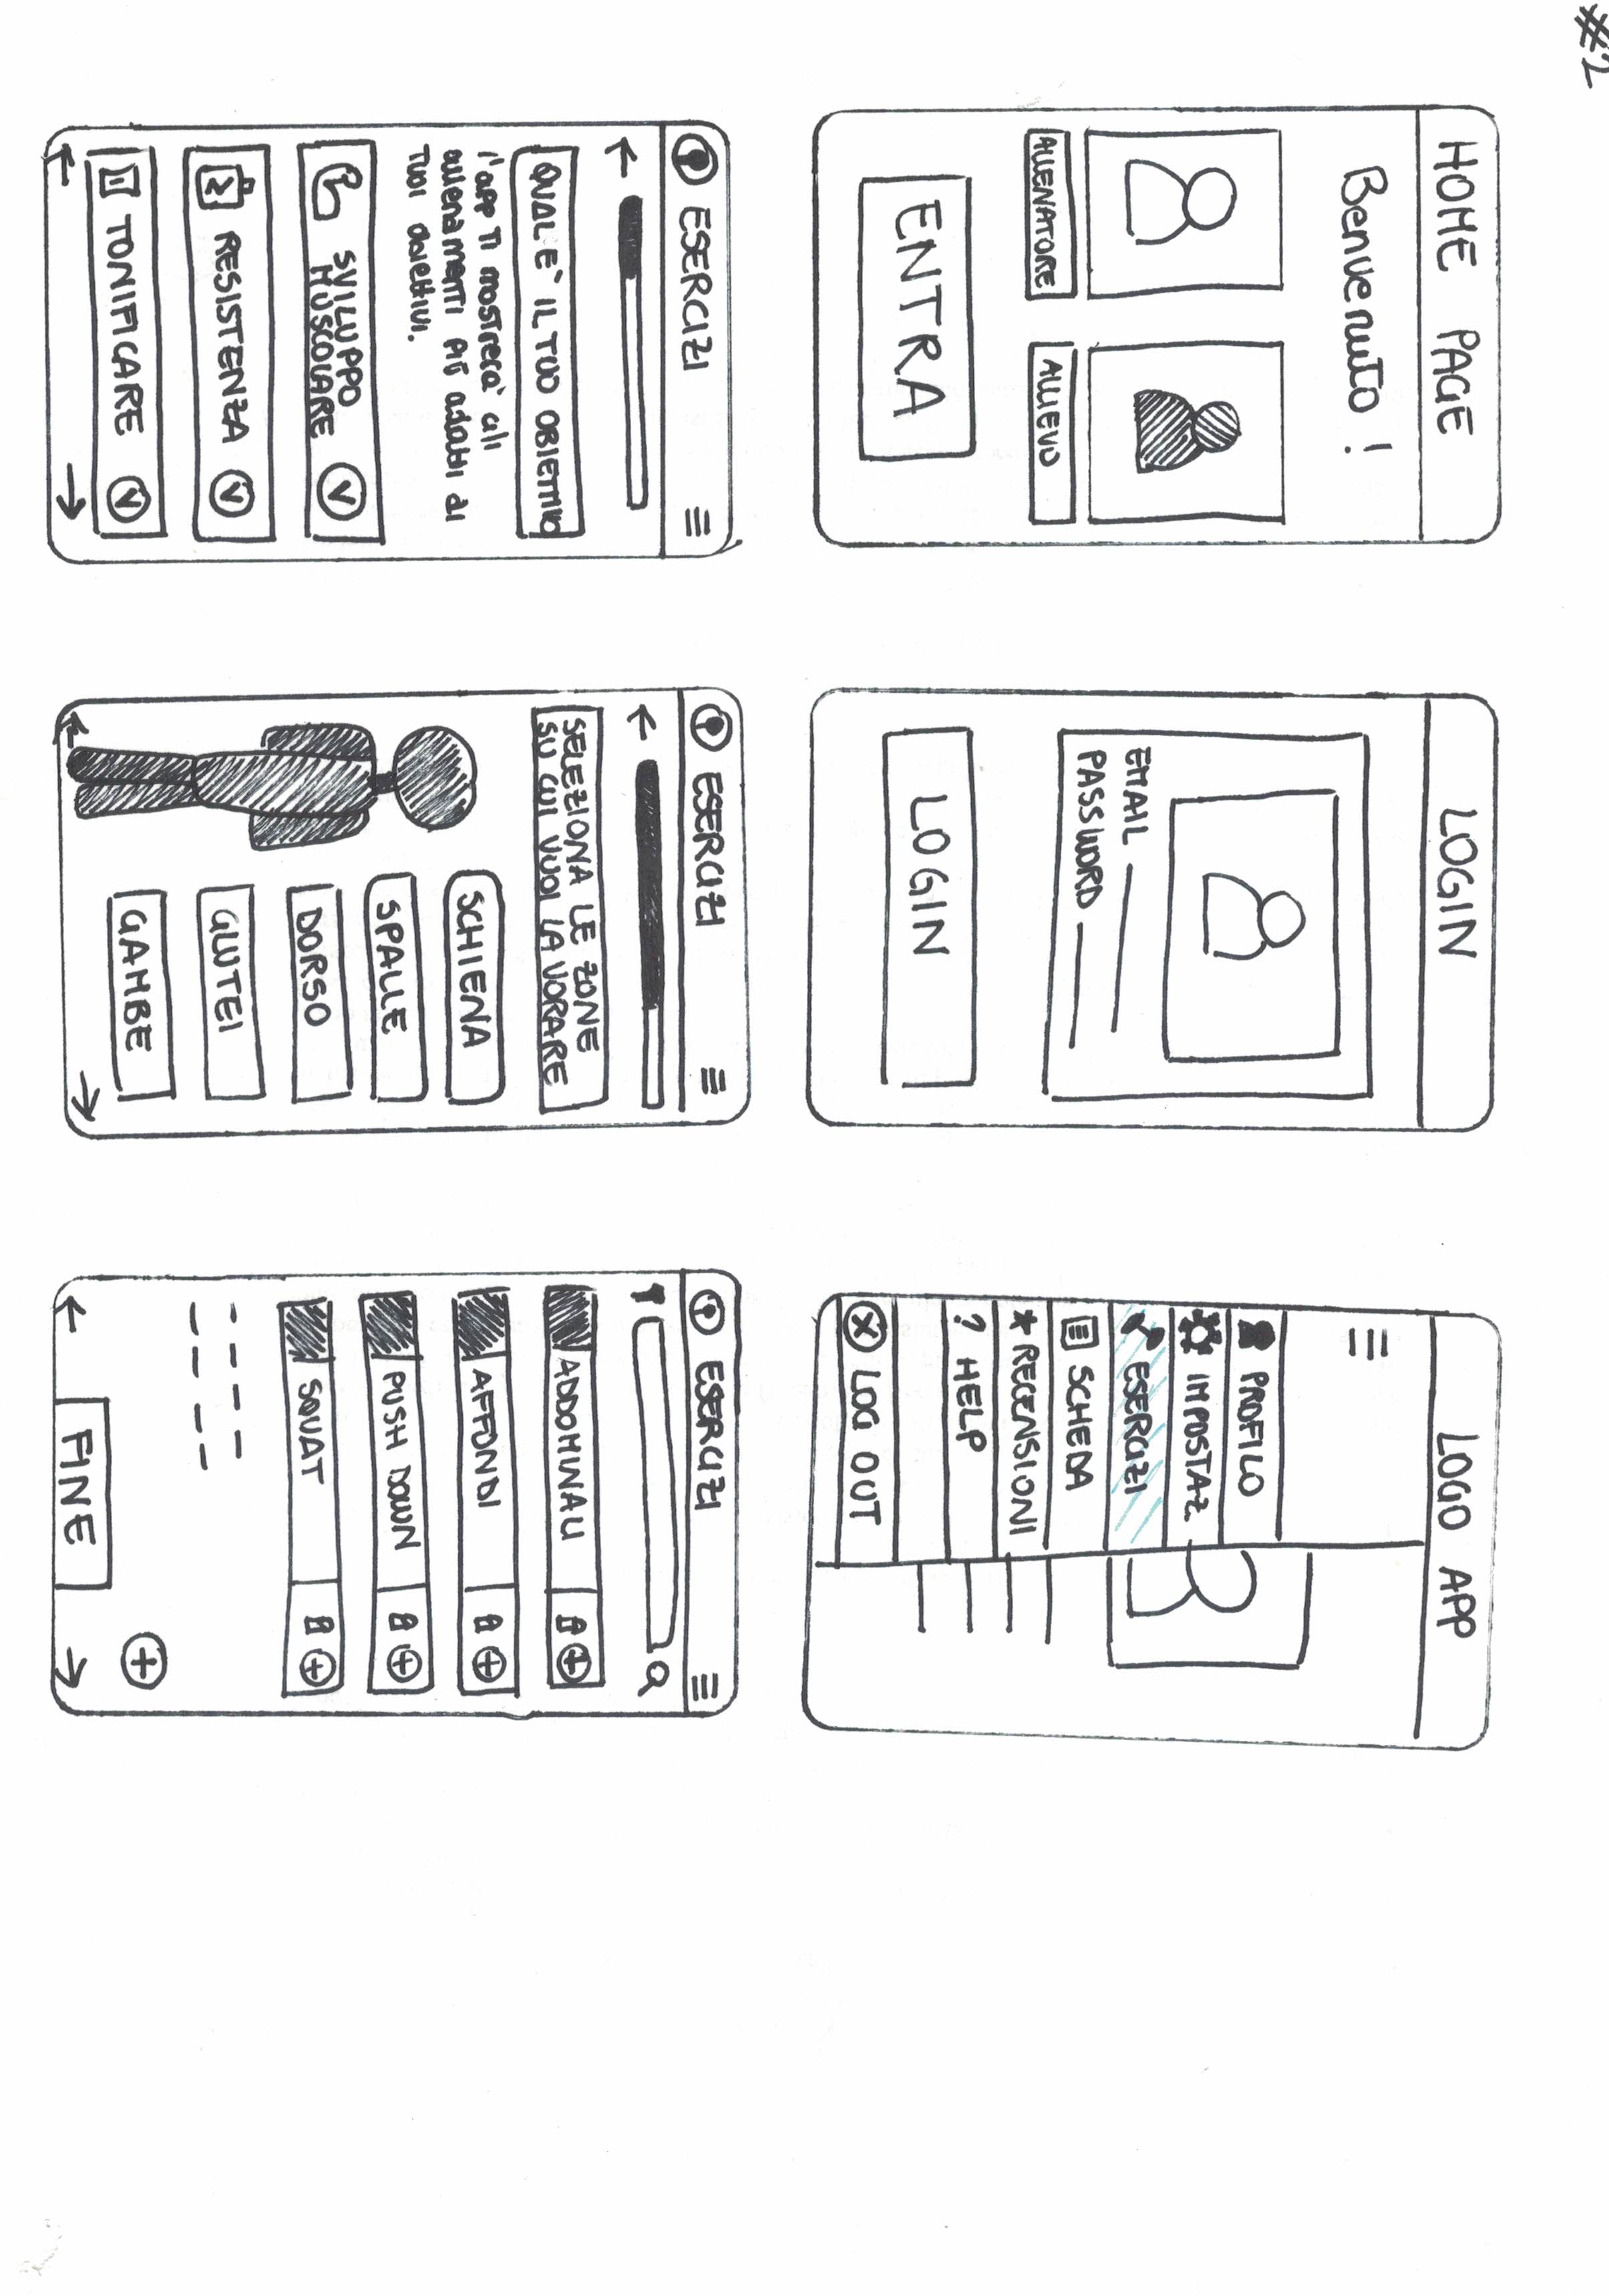 #2
HOME PAGE
Benvenuto !
ALLENATORE
ALLIEVO
ENTRA
LOGIN
EMAIL
PASSWORD
LOGIN
LOGO APP
PROFILO
IMPOSTAZ
ESERCIZI
SCHEDA
* RECENSIONI
? HELP
LOG OUT
ESERCIZI
QUAL E' IL TUO OBIETTIVO
l'app ti mostrerà gli
allenamenti più adatti ai
tuoi obiettivi.
SVILUPPO
MUSCOLARE
RESISTENZA
TONIFICARE
ESERCIZI
SELEZIONA LE ZONE
SU CUI VUOI LAVORARE
SCHIENA
SPALLE
DORSO
GLUTEI
GAMBE
ESERCIZI
ADDOMINALI
AFFONDI
PUSH DOWN
SQUAT
FINE